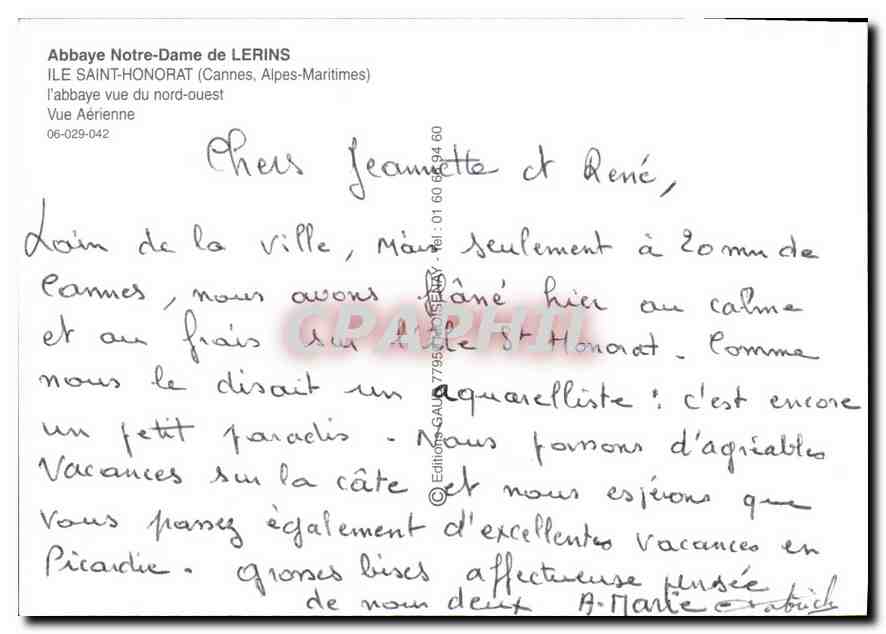 Abbaye Notre-Dame de LERINS
ILE SAINT-HONORAT (Cannes, Alpes-Maritimes)
l'abbaye vue du nord-ouest
Vue Aérienne
06-029-042
Chers Jeannette et René,
Loin de la ville, mais seulement à 20 mn de
Cannes, nous avons flâné hier au calme
et au frais sur l'île St Honorat. Comme
nous le disait un aquarelliste : c'est encore
un petit paradis. Nous passons d'agréables
vacances sur la côte et nous espérons que
vous passez également d'excellentes vacances en
Picardie. Grosses bises affectueuse pensée
de nous deux A-Marie Patrick
© Editions GAUD 77950 MOISENAY - Tél : 01 60 66 94 60
CPAPHIL